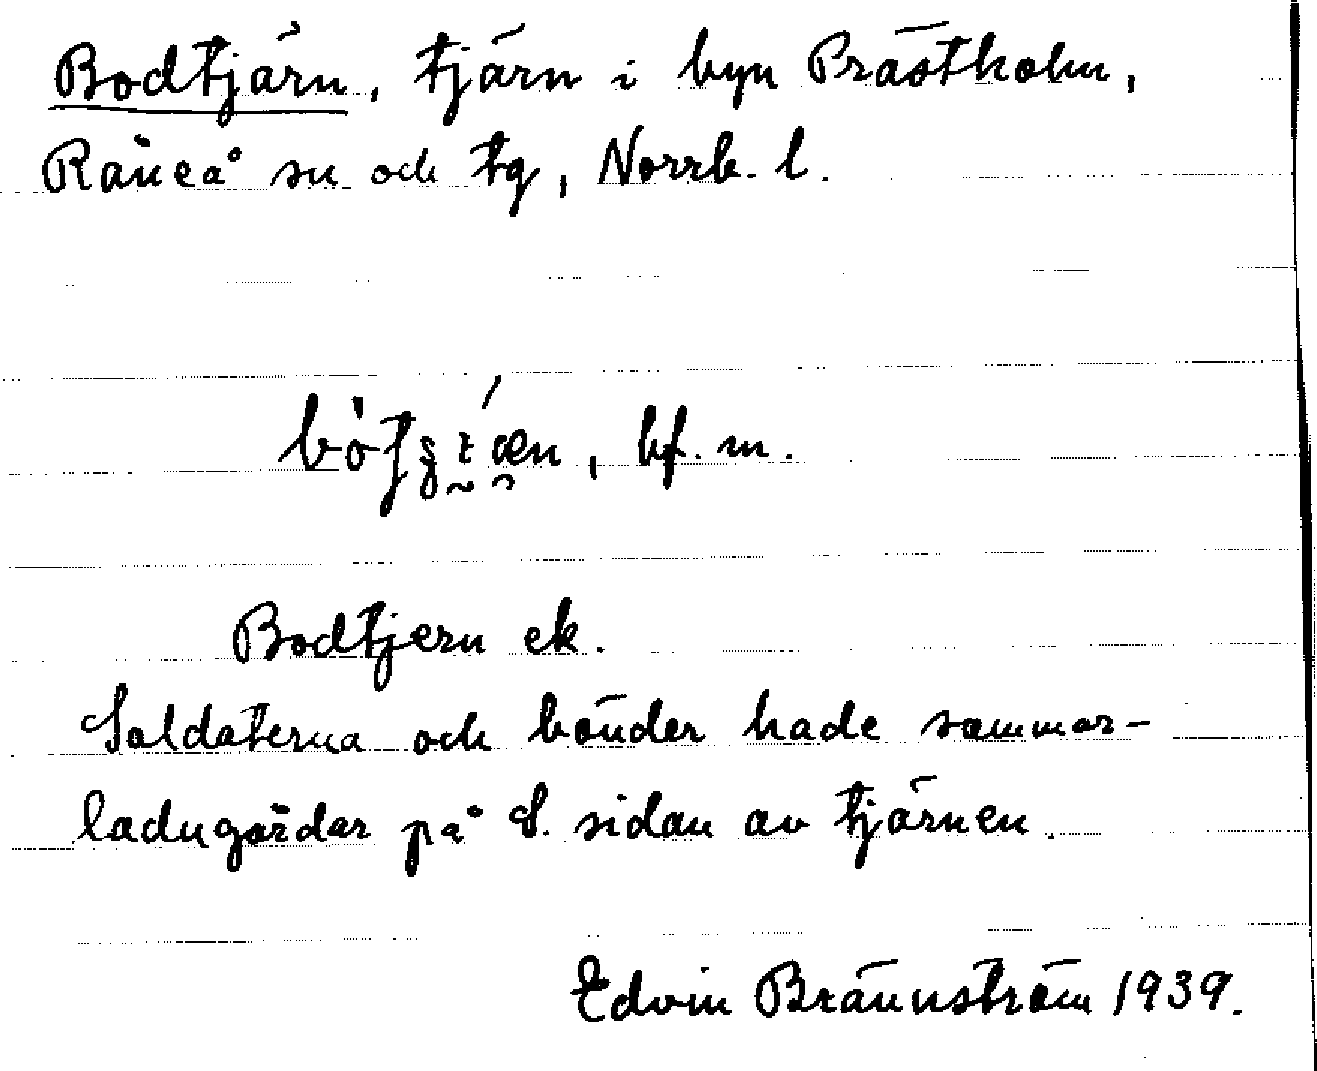 Bodtjärn, tjärn i byn Prästholm,
Råneå sn och tg, Norrb. l.
bf. m.
Bodtjern ek.
Soldaterna och bönder hade sommar-
ladugårdar på S. sidan av tjärnen.
Edvin Brännström 1939.